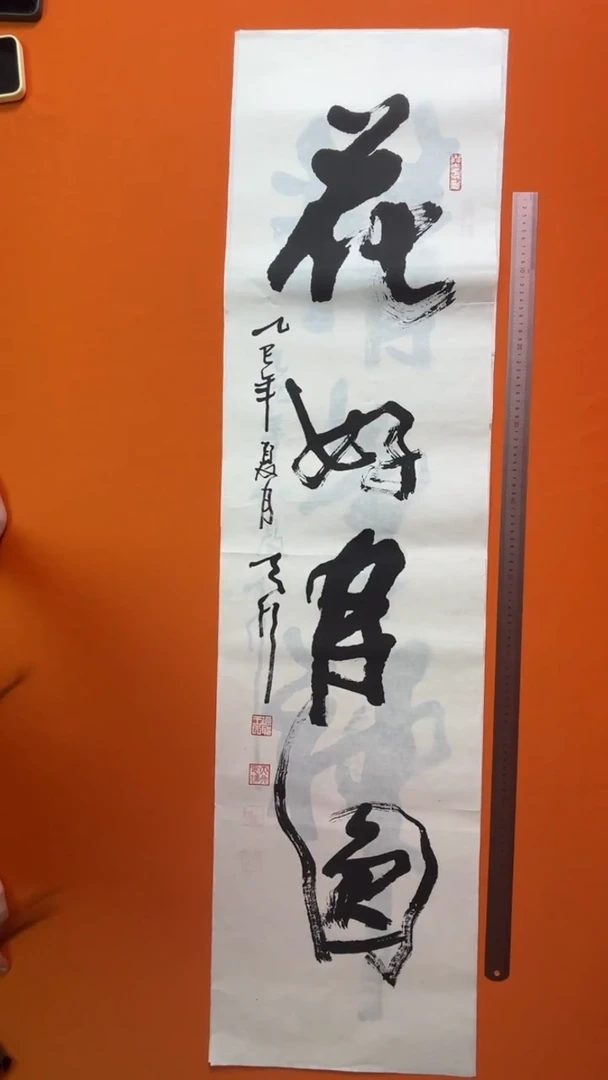 花好月圆
乙巳年夏月